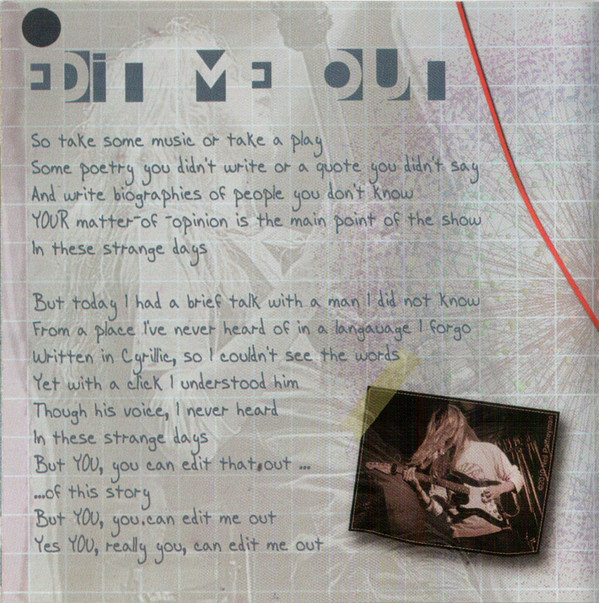 EDiT ME OUT
So take some music or take a play
Some poetry you didn't write or a quote you didn't say
And write biographies of people you don't know
YOUR matter-of-opinion is the main point of the show
In these strange days
But today I had a brief talk with a man I did not know
From a place I've never heard of in a langauage I forgo
Written in Cyrillic, so I couldn't see the words
Yet with a click I understood him
Though his voice, I never heard
In these strange days
But YOU, you can edit that out ...
...of this story
But YOU, you can edit me out
Yes YOU, really you, can edit me out